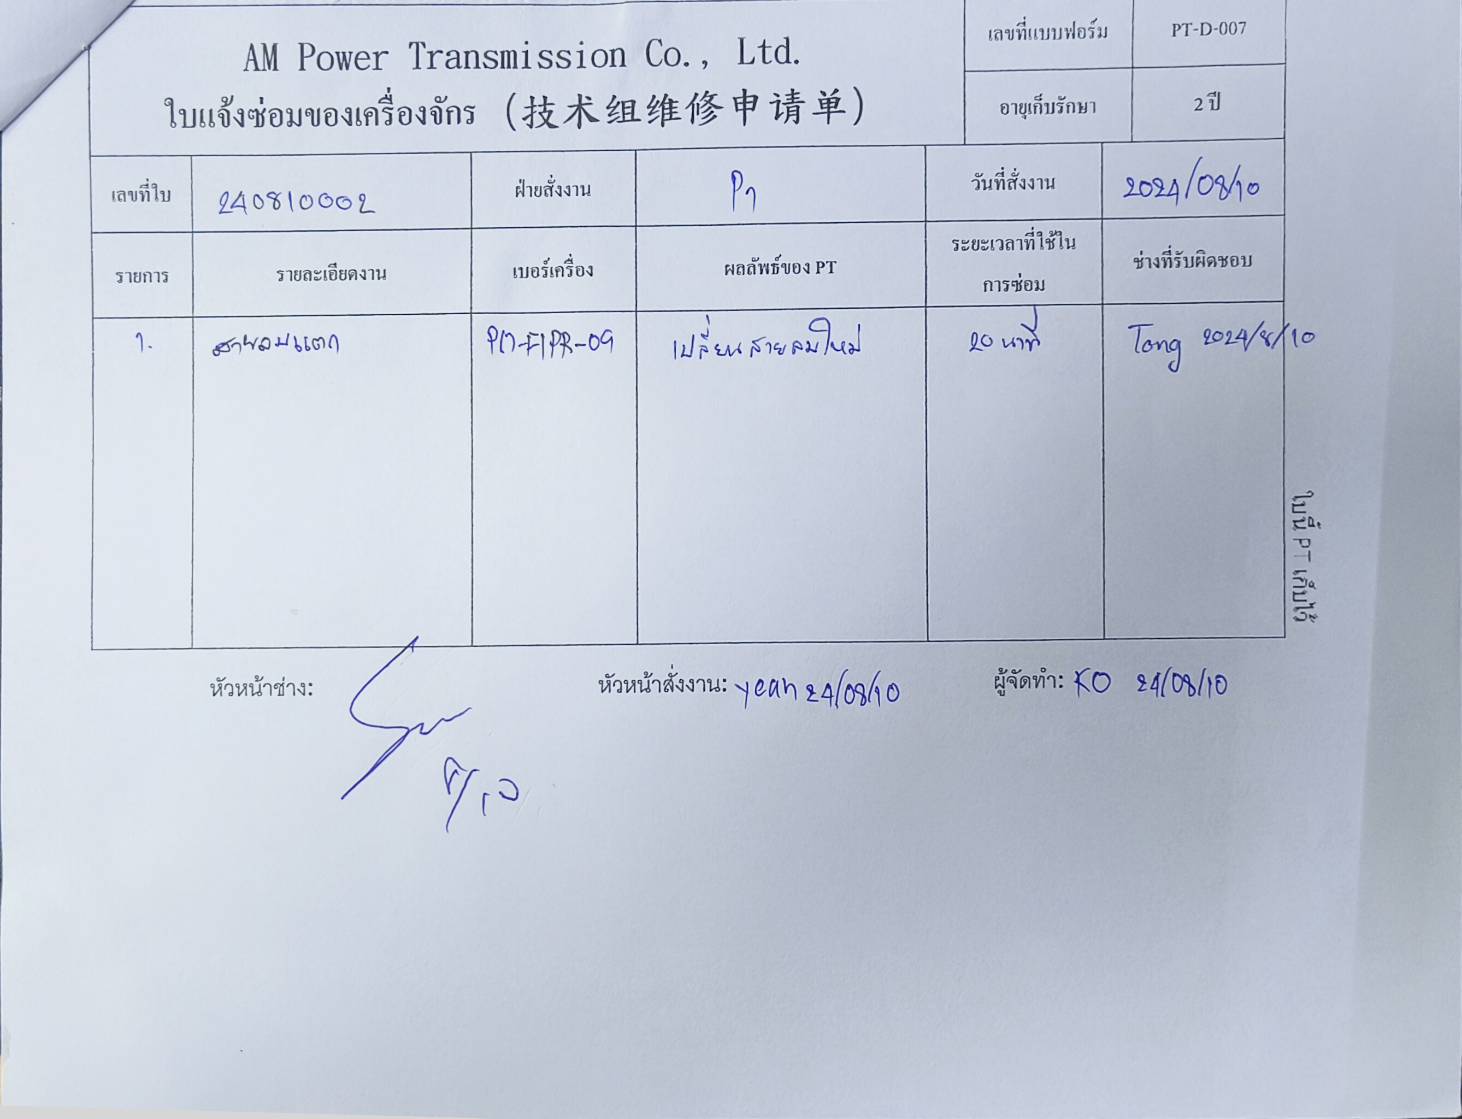 AM Power Transmission Co., Ltd.
ใบแจ้งซ่อมของเครื่องจักร (技术组维修申请单)
เลขที่แบบฟอร์ม PT-D-007
อายุเก็บรักษา 2 ปี
เลขที่ใบ 240810002 ฝ่ายสั่งงาน P1 วันที่สั่งงาน 2024/08/10
รายการ รายละเอียดงาน เบอร์เครื่อง ผลลัพธ์ของ PT ระยะเวลาที่ใช้ในการซ่อม ช่างที่รับผิดชอบ
1. สายลมแตก เปลี่ยนสายลมใหม่ 20 นาที Tong 2024/8/10
ใบนี้ PT เก็บไว้
หัวหน้าช่าง: 8/10
หัวหน้าสั่งงาน: yean 24/08/10
ผู้จัดทำ: KO 24/08/10